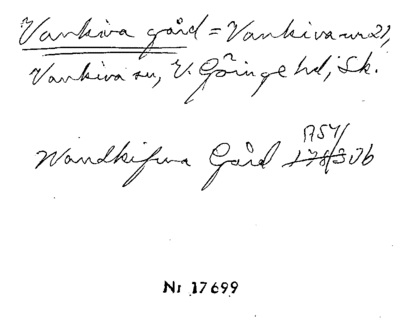 Vankiva gård = Vankiva nr 21,
Vankiva sn, V. Göinge hd, Sk.
Wandkifwa Gård
Nr 17699